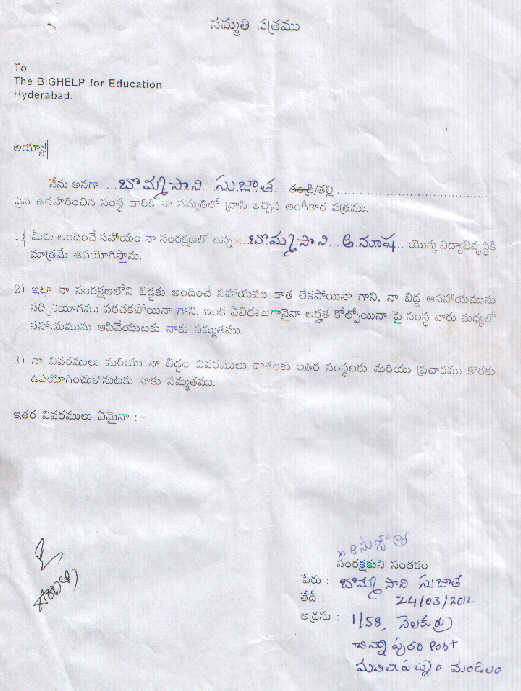 సమ్మతి పత్రము
To
The BIGHELP for Education
Hyderabad.
అయ్యా!
నేను అనగా ... బొమ్మసాని సుజాత తండ్రి/తల్లి
పైన ఉదహరించిన సంస్థ వారికి నా సమ్మతిలో వ్రాసి ఇచ్చిన అంగీకార పత్రము.
1) మీరు అందించే సహాయం నా సంరక్షణలో ఉన్న బొమ్మసాని అనూష యొక్క విద్యాభివృద్ధికి
మాత్రమే ఉపయోగిస్తాము.
2) ఇట్లా నా సంరక్షణలోని బిడ్డకు అందించే సహాయము కాత లేకపోయినా గాని, నా బిడ్డ ఆ సహాయమును
సద్వినియోగము పరచకపోయినా గాని, ఇంకా ఏవిధంగానైనా అర్హత కోల్పోయినా పై సంస్థ వారు మధ్యలో
సహాయమును ఆపివేయుటకు నాకు సమ్మతము.
3) నా వివరములు మరియు నా బిడ్డల వివరములు దాతలకు ఇతర సంస్థలకు మరియు ప్రచారము కొరకు
ఉపయోగించుకొనుటకు నాకు సమ్మతము.
ఇతర వివరములు ఏమైనా :-
సంరక్షకుని సంతకం
పేరు : బొమ్మసాని సుజాత
తేదీ 24/03/2012
అడ్రసు : 1/58, నెలకుర్రు
చిన్నాపురం Post
మచిలీపట్నం మండలం